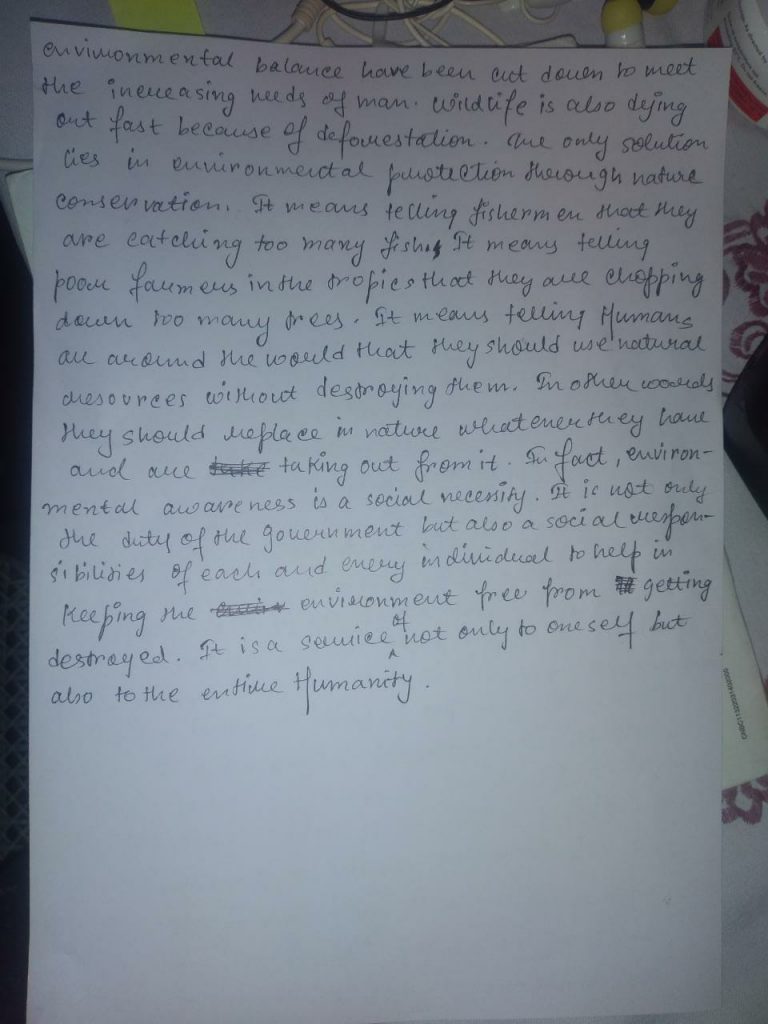 environmental balance have been cut down to meet
the increasing needs of man. Wildlife is also dying
out fast because of deforestation. The only solution
lies in environmental protection through nature
conservation. It means telling fishermen that they
are catching too many fish. It means telling
poor farmers in the tropics that they are chopping
down too many trees. It means telling Humans
all around the world that they should use natural
resources without destroying them. In other words
they should replace in nature whatever they have
and are taking out from it. In fact, environ-
mental awareness is a social necessity. It is not only
the duty of the government but also a social respon-
sibilities of each and every individual to help in
Keeping the environment free from getting
destroyed. It is a service of not only to oneself but
also to the entire Humanity.